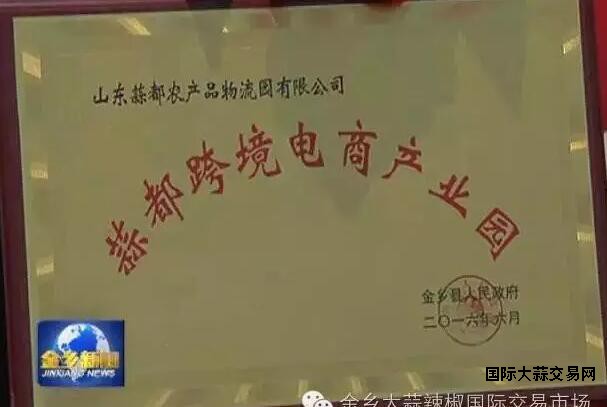 山东蒜都农产品物流园有限公司
蒜都跨境电商产业园
金乡县人民政府
二〇一六年六月
金乡新闻
JINXIANG NEWS
国际大蒜交易网
金乡大蒜辣椒国际交易市场